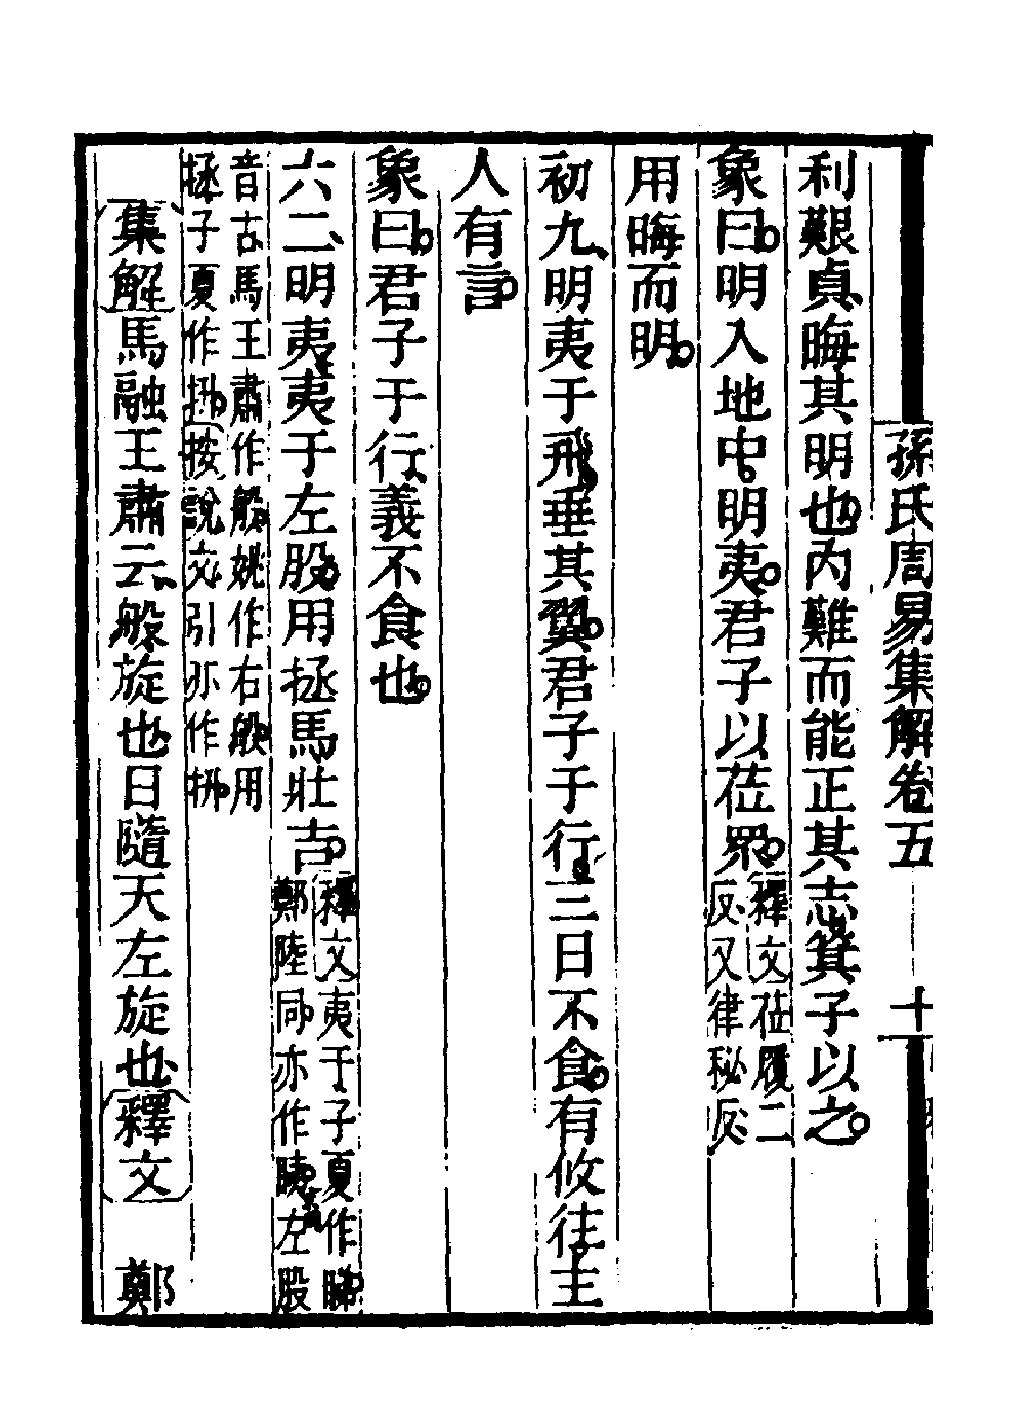 孫氏周易集解卷五 十
利艱貞晦其明也內難而能正其志箕子以之
象曰明入地中明夷君子以莅眾釋文莅履二
反又律秘反
用晦而明
初九明夷于飛垂其翼君子于行三日不食有攸往主
人有言
象曰君子于行義不食也
六二明夷夷于左股用拯馬壯吉釋文夷于子夏作睇
鄭陸同亦作睇左股
音古馬王肅作般姚作右般用
拯子夏作抍按說文引亦作抍
集解馬融王肅云般旋也日隨天左旋也釋文 鄭